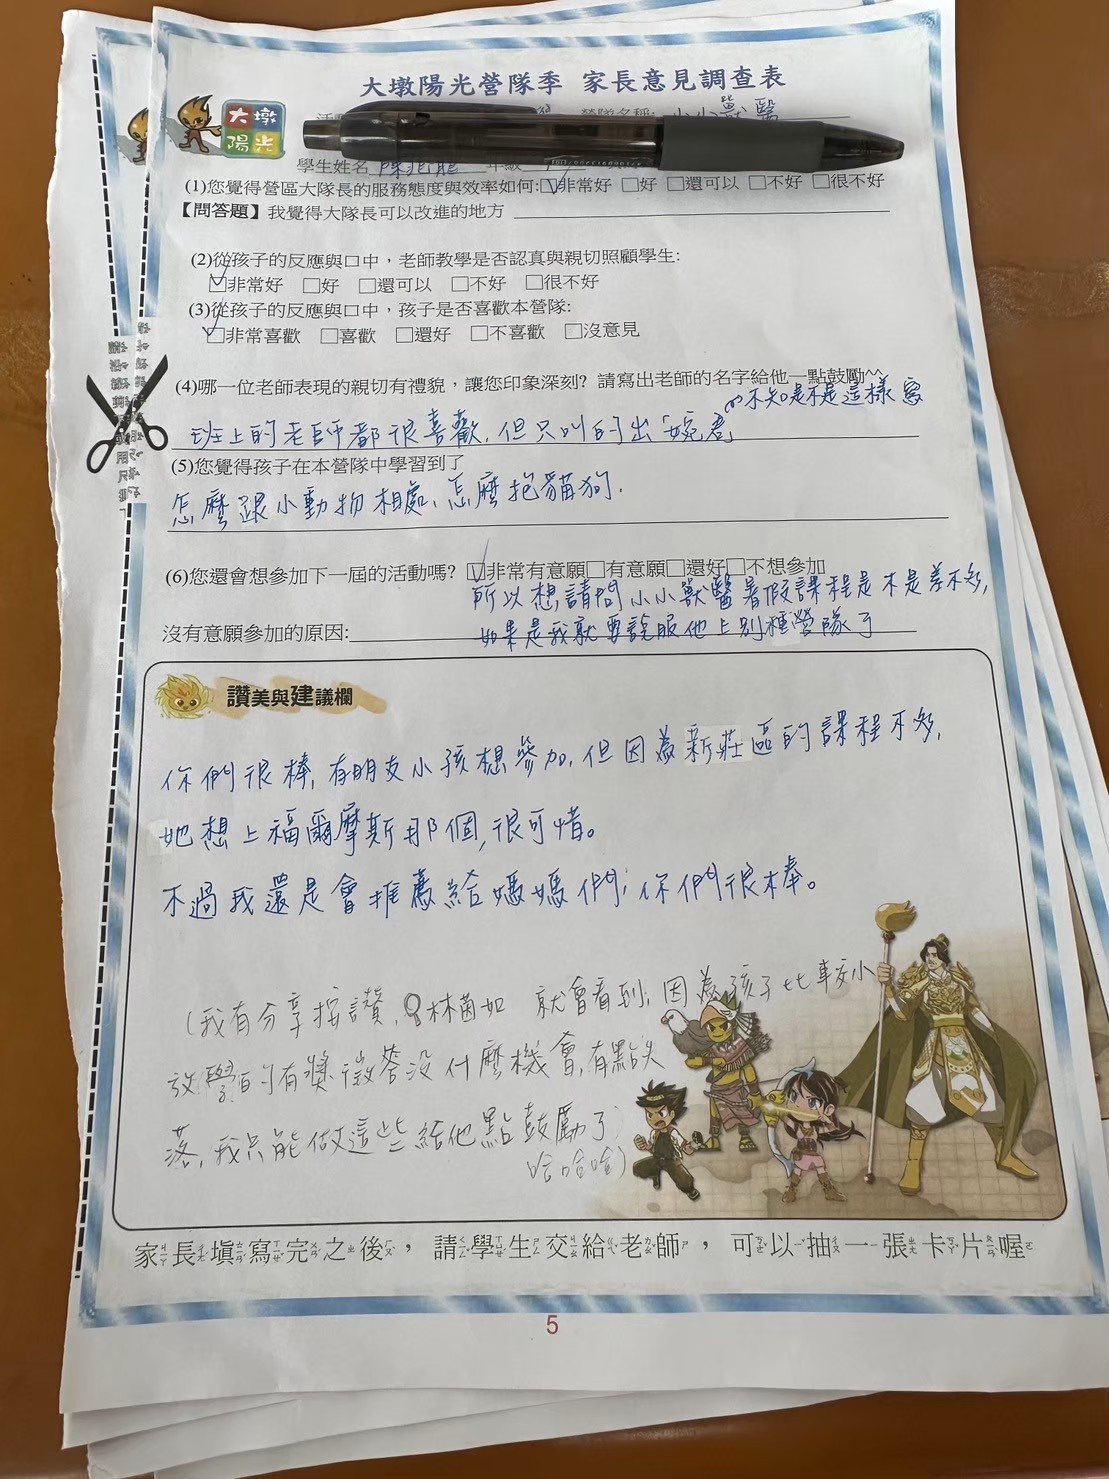 大墩陽光營隊季 家長意見調查表
大墩
陽光
營隊名稱: 小小獸醫
學生姓名 年級
(1)您覺得營區大隊長的服務態度與效率如何:☑非常好 □好 □還可以 □不好 □很不好
【問答題】我覺得大隊長可以改進的地方
(2)從孩子的反應與口中，老師教學是否認真與親切照顧學生:
☑非常好 □好 □還可以 □不好 □很不好
(3)從孩子的反應與口中，孩子是否喜歡本營隊:
☑非常喜歡 □喜歡 □還好 □不喜歡 □沒意見
(4)哪一位老師表現的親切有禮貌，讓您印象深刻? 請寫出老師的名字給他一點鼓勵^^
不知是不是這樣寫
班上的老師都很喜歡，但只叫的出「婉君」
(5)您覺得孩子在本營隊中學習到了
怎麼跟小動物相處、怎麼抱貓狗.
(6)您還會想參加下一屆的活動嗎? ☑非常有意願□有意願□還好□不想參加
所以想請問小小獸醫暑假課程是不是差不多,
沒有意願參加的原因:
如果是我就要說服他上別種營隊了
讚美與建議欄
你們很棒，有朋友小孩想參加，但因為新莊區的課程不多,
她想上福爾摩斯那個，很可惜。
不過我還是會推薦給媽媽們；你們很棒。
(我有分享按讚, 林茵如 就會看到；因為孩子比較小
放學的有獎徵答沒什麼機會,有點失
落,我只能做這些給他點鼓勵了
哈哈哈)
家長填寫完之後，請學生交給老師，可以抽一張卡片喔
5